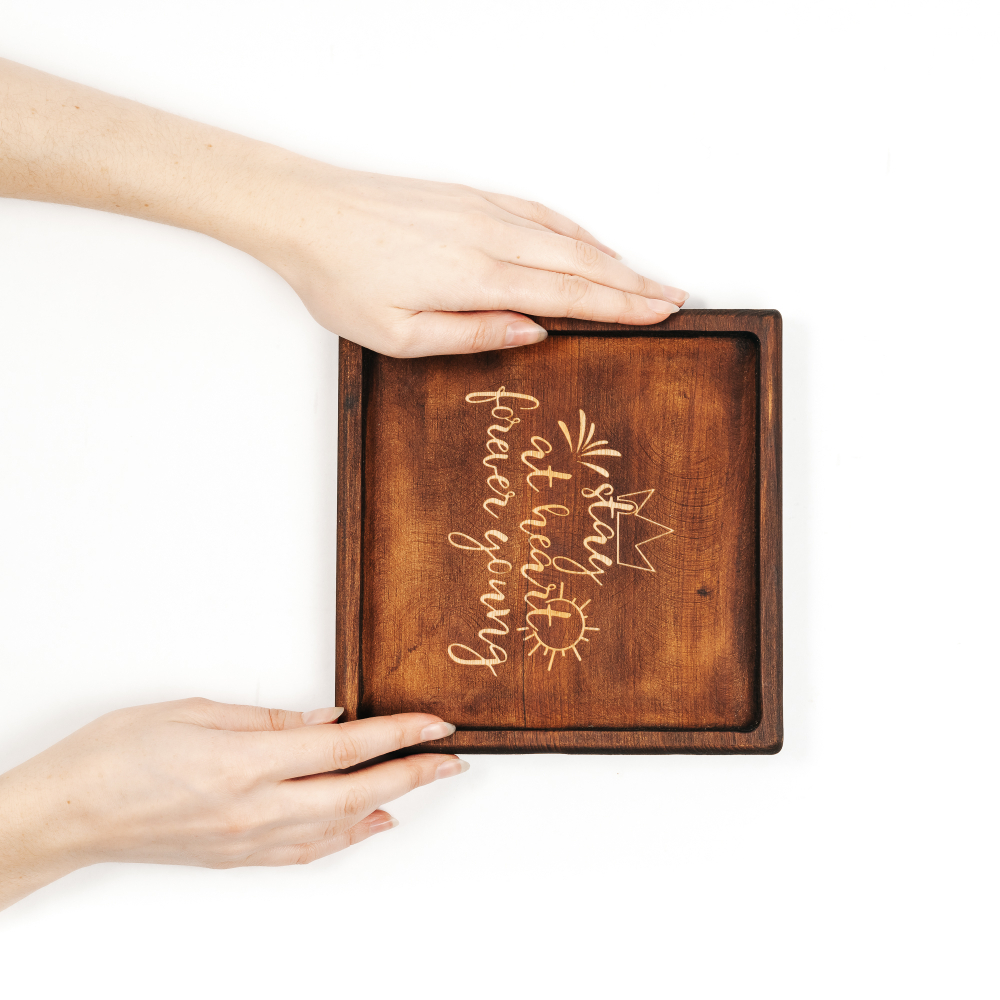 stay
at heart
forever young